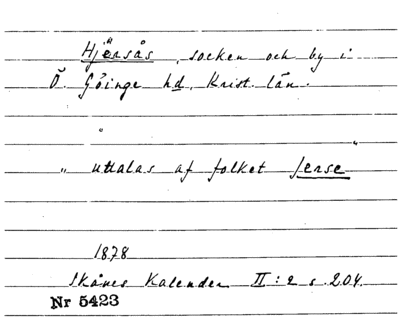 Hjärsås, socken och by i
Ö. Göinge hd, Krist. län.
„ uttalas af folket Jerse "
1878
Skånes Kalender II: 2 s. 204.
Nr 5423